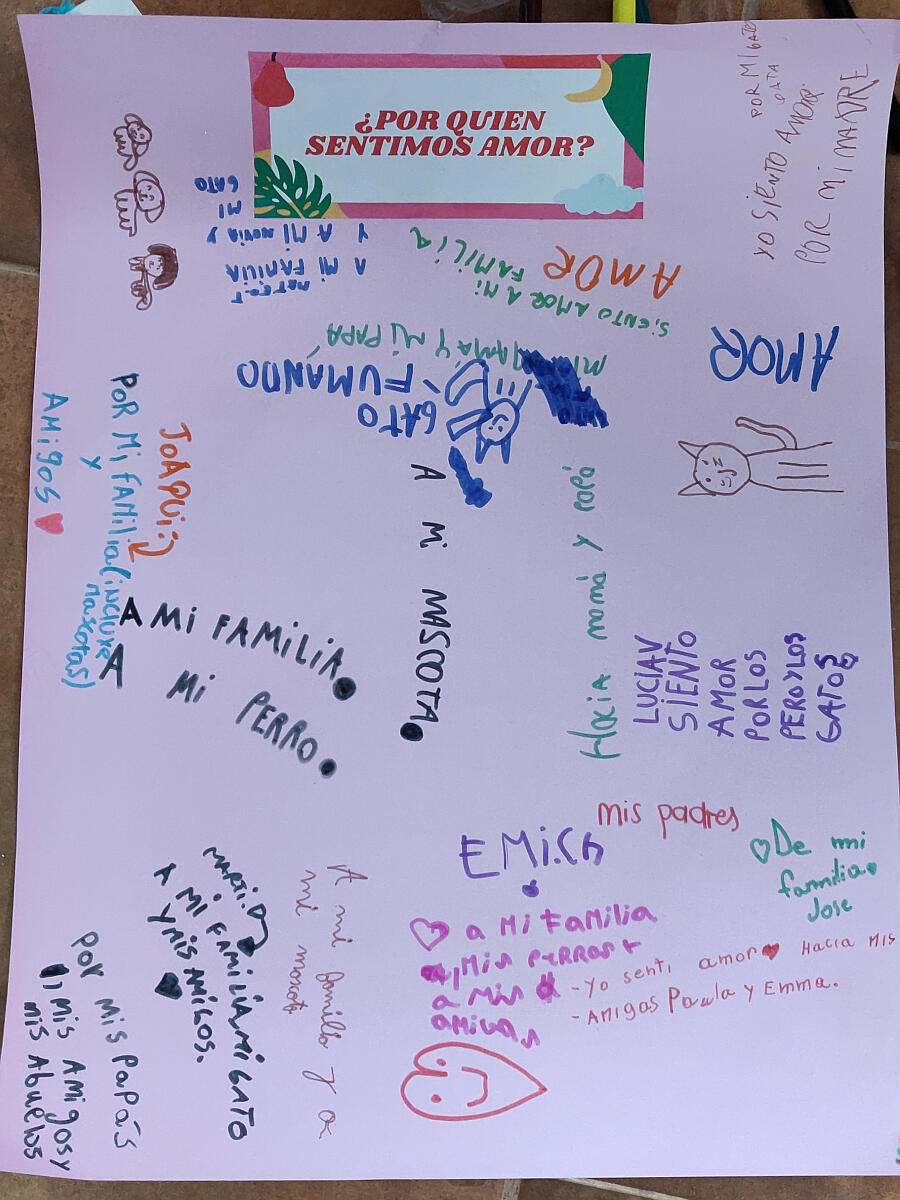 ¿POR QUIEN
SENTIMOS AMOR?
POR MI GATE
PATA
YO SIENTO AMOR
POR MI MADRE
A MI FAMILIA
Y A MI NOVIA Y
MI
GATO
SiENTO AMOR A MI
FAMILIA
AMOR
AMOR
MI MAMÁ Y MI PAPÁ
GATO
FUMANDO
JOAQUI:)
POR Mi FAMiLia (iNCLUYE
MascoTas)
y
AMigos
A Mi FAMiLiA
A Mi PERRO
A Mi MASCOTA
Hacia mamá y papá
LUCIAV
SIENTO
AMOR
POR LOS
PEROYLOS
GATOS
mis padres
De mi
familia
Jose
EMi.Ch
a Mi Familia
Mis PERROS Y
a Mis
amigas
-Yo senti amor Hacia Mis
-AMigos Paula y Emma.
MARTi.D
A Mi FAMiLiA,Mi GATO
Y MiS AMiGOS.
A mi familia y a
mi mascota
POR Mis PaPás
Mis AMigos y
Mis Abuelos